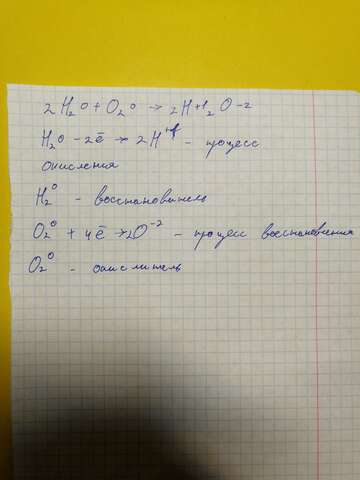 2H₂⁰ + O₂⁰ → 2H⁺¹₂O⁻²
H₂⁰ - 2ē → 2H⁺¹ - процесс
окисления
H₂⁰ - восстановитель
O₂⁰ + 4ē → 2O⁻² - процесс восстановления
O₂⁰ - окислитель